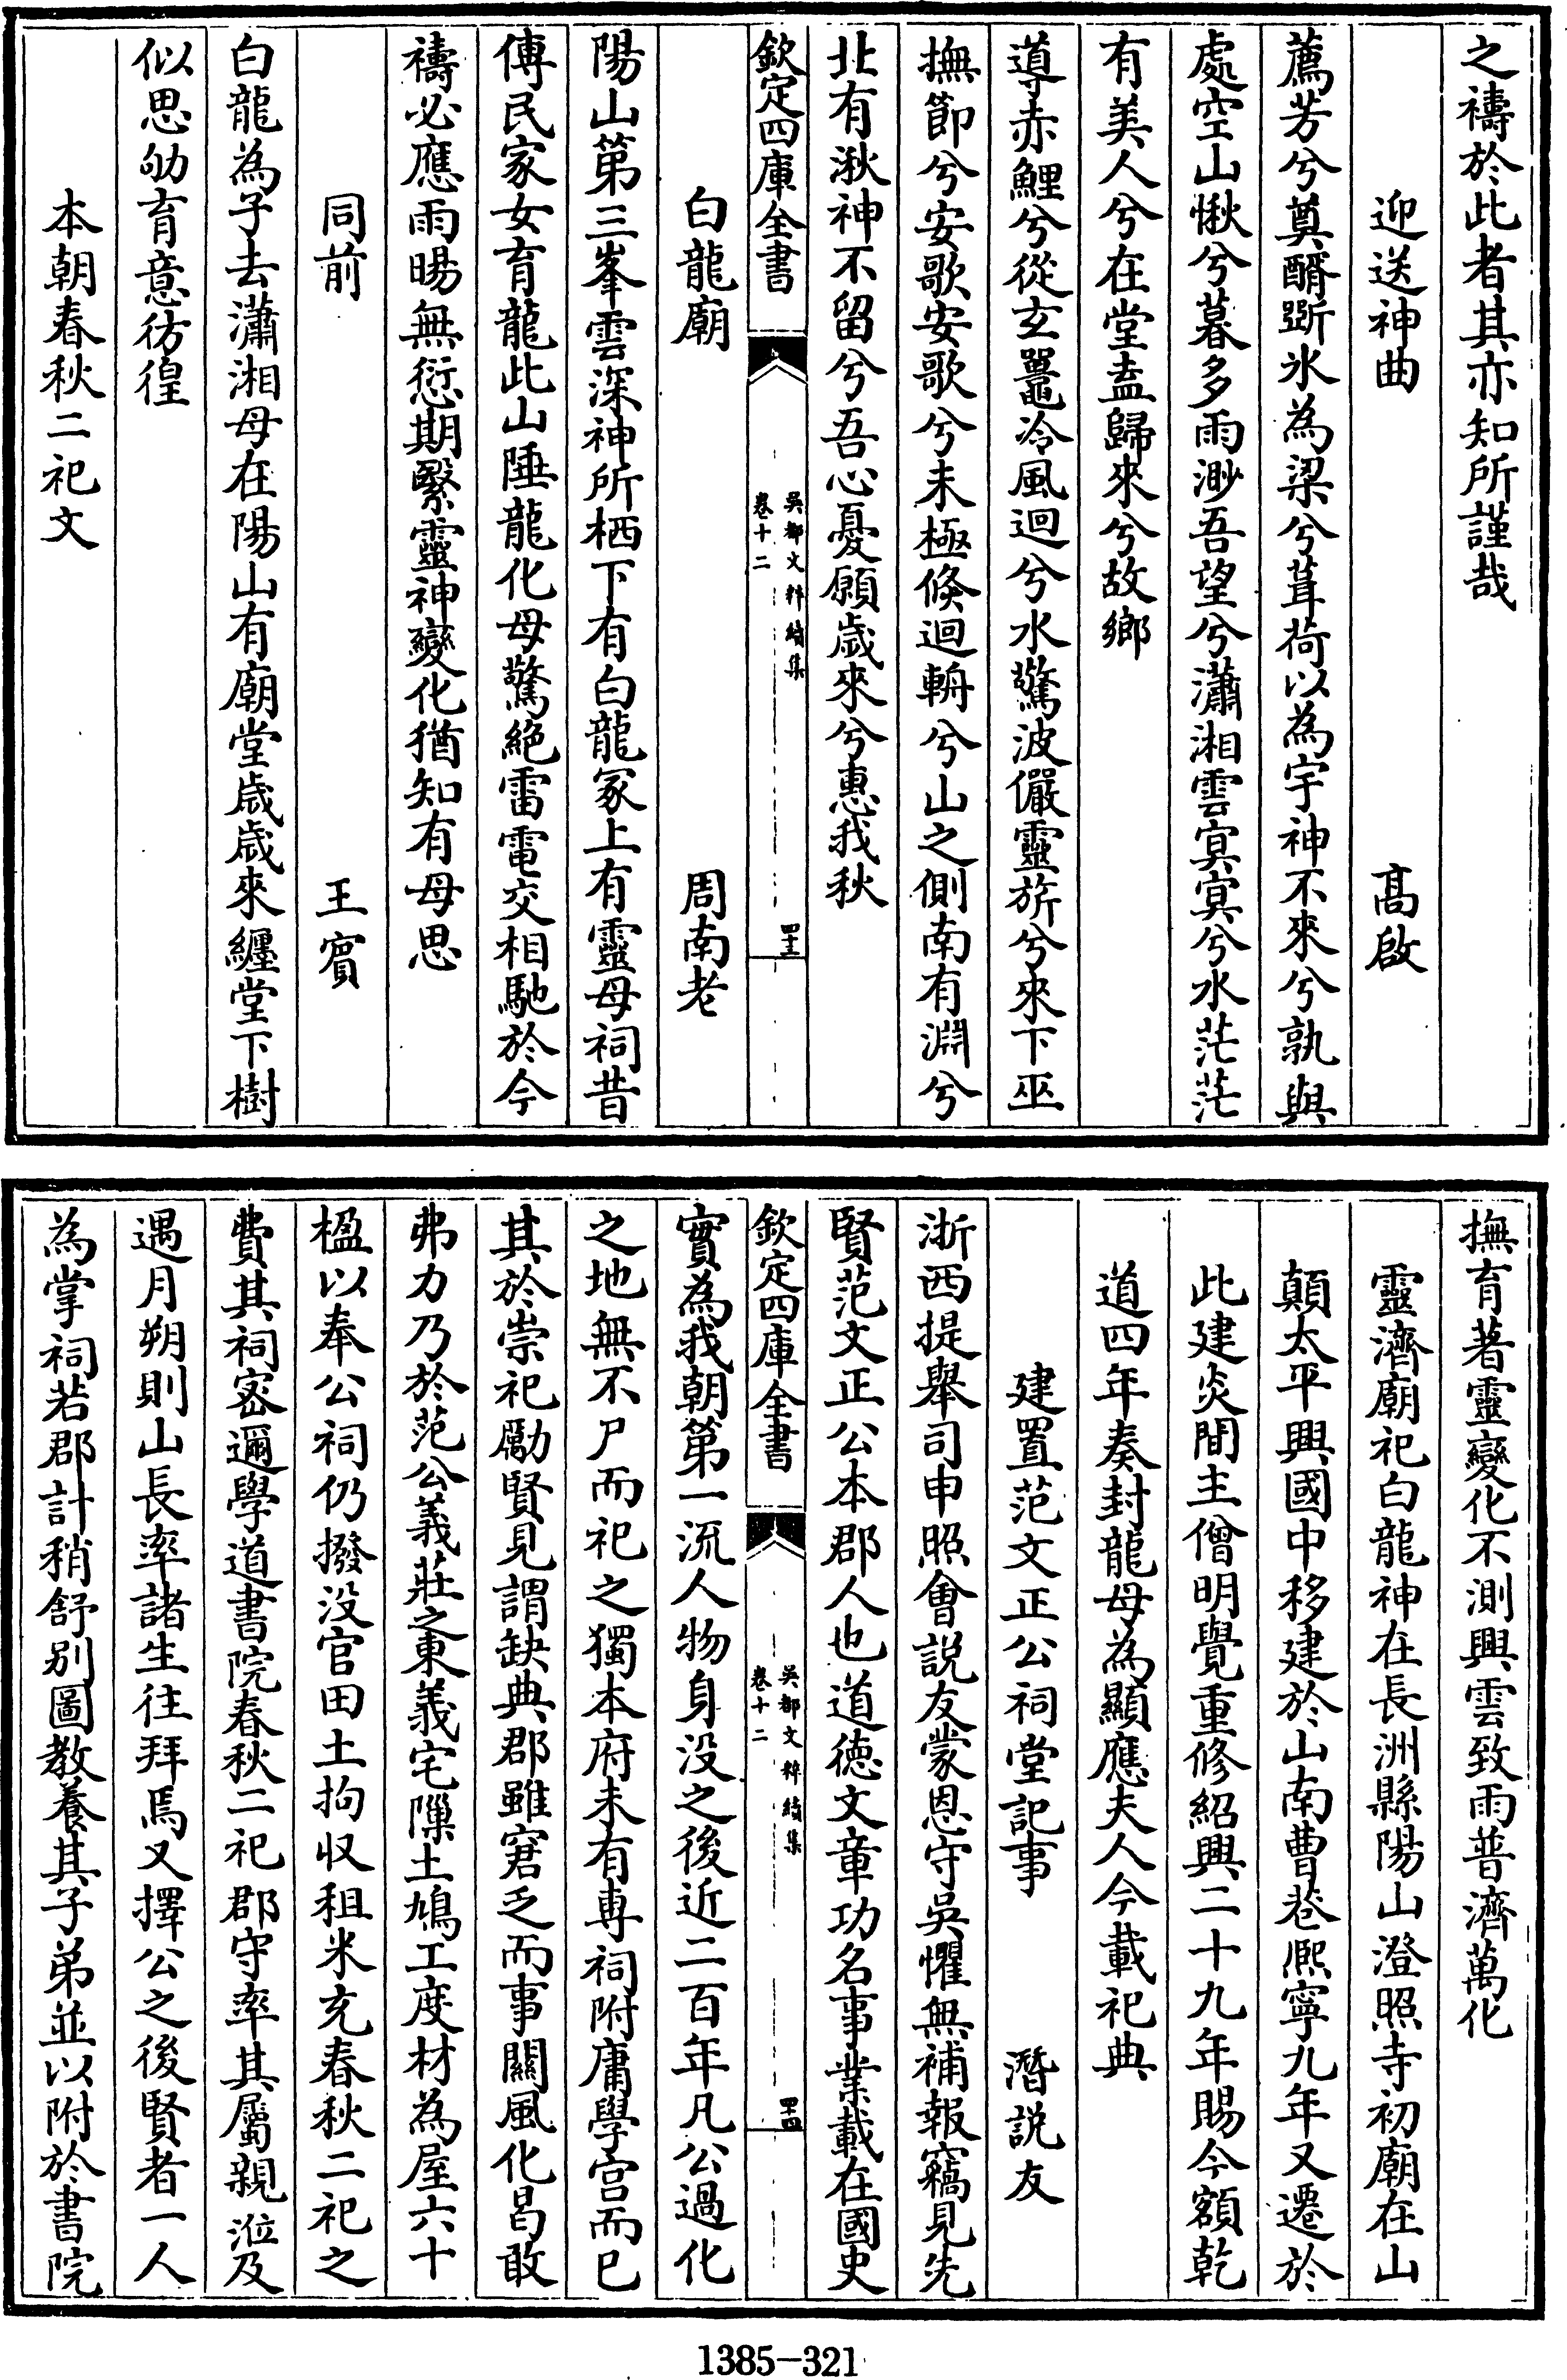 之禱於此者其亦知所謹哉
迎送神曲 高啟
薦芳兮奠醑斲冰為梁兮葺荷以為宇神不來兮孰與
處空山愀兮暮多雨渺吾望兮瀟湘雲冥冥兮水茫茫
有美人兮在堂盍歸來兮故鄉
導赤鯉兮從玄鼉冷風迴兮水驚波儼靈旂兮來下巫
撫節兮安歌安歌兮未極倐迴輈兮山之側南有淵兮
北有湫神不留兮吾心憂願歲來兮惠我秋
欽定四庫全書
吳都文粹續集
卷十二
四十三
白龍廟 周南老
陽山第三峯雲深神所栖下有白龍冢上有靈母祠昔
傳民家女育龍此山陲龍化母驚絕雷電交相馳於今
禱必應雨暘無愆期繄靈神變化猶知有母思
同前 王賓
白龍為子去瀟湘母在陽山有廟堂歲歲來纏堂下樹
似思劬育意彷徨
本朝春秋二祀文
撫育著靈變化不測興雲致雨普濟萬化
靈濟廟祀白龍神在長洲縣陽山澄照寺初廟在山
顛太平興國中移建於山南曹巷熈寧九年又遷於
此建炎間主僧明覺重修紹興二十九年賜今額乾
道四年奏封龍母為顯應夫人今載祀典
建置范文正公祠堂記事 潛說友
浙西提舉司申照會説友蒙恩守吳懼無補報竊見先
賢范文正公本郡人也道德文章功名事業載在國史
欽定四庫全書
吳都文粹續集
卷十二
四十四
實為我朝第一流人物身没之後近二百年凡公過化
之地無不尸而祀之獨本府未有專祠附庸學宫而已
其於崇祀勵賢見謂缺典郡雖窘乏而事關風化曷敢
弗力乃於范公義莊之東義宅隟土鳩工度材為屋六十
楹以奉公祠仍撥没官田土拘収租米充春秋二祀之
費其祠密邇學道書院春秋二祀郡守率其屬親涖及
遇月朔則山長率諸生往拜焉又擇公之後賢者一人
為掌祠若郡計稍舒别圖教養其子弟並以附於書院
1385-321